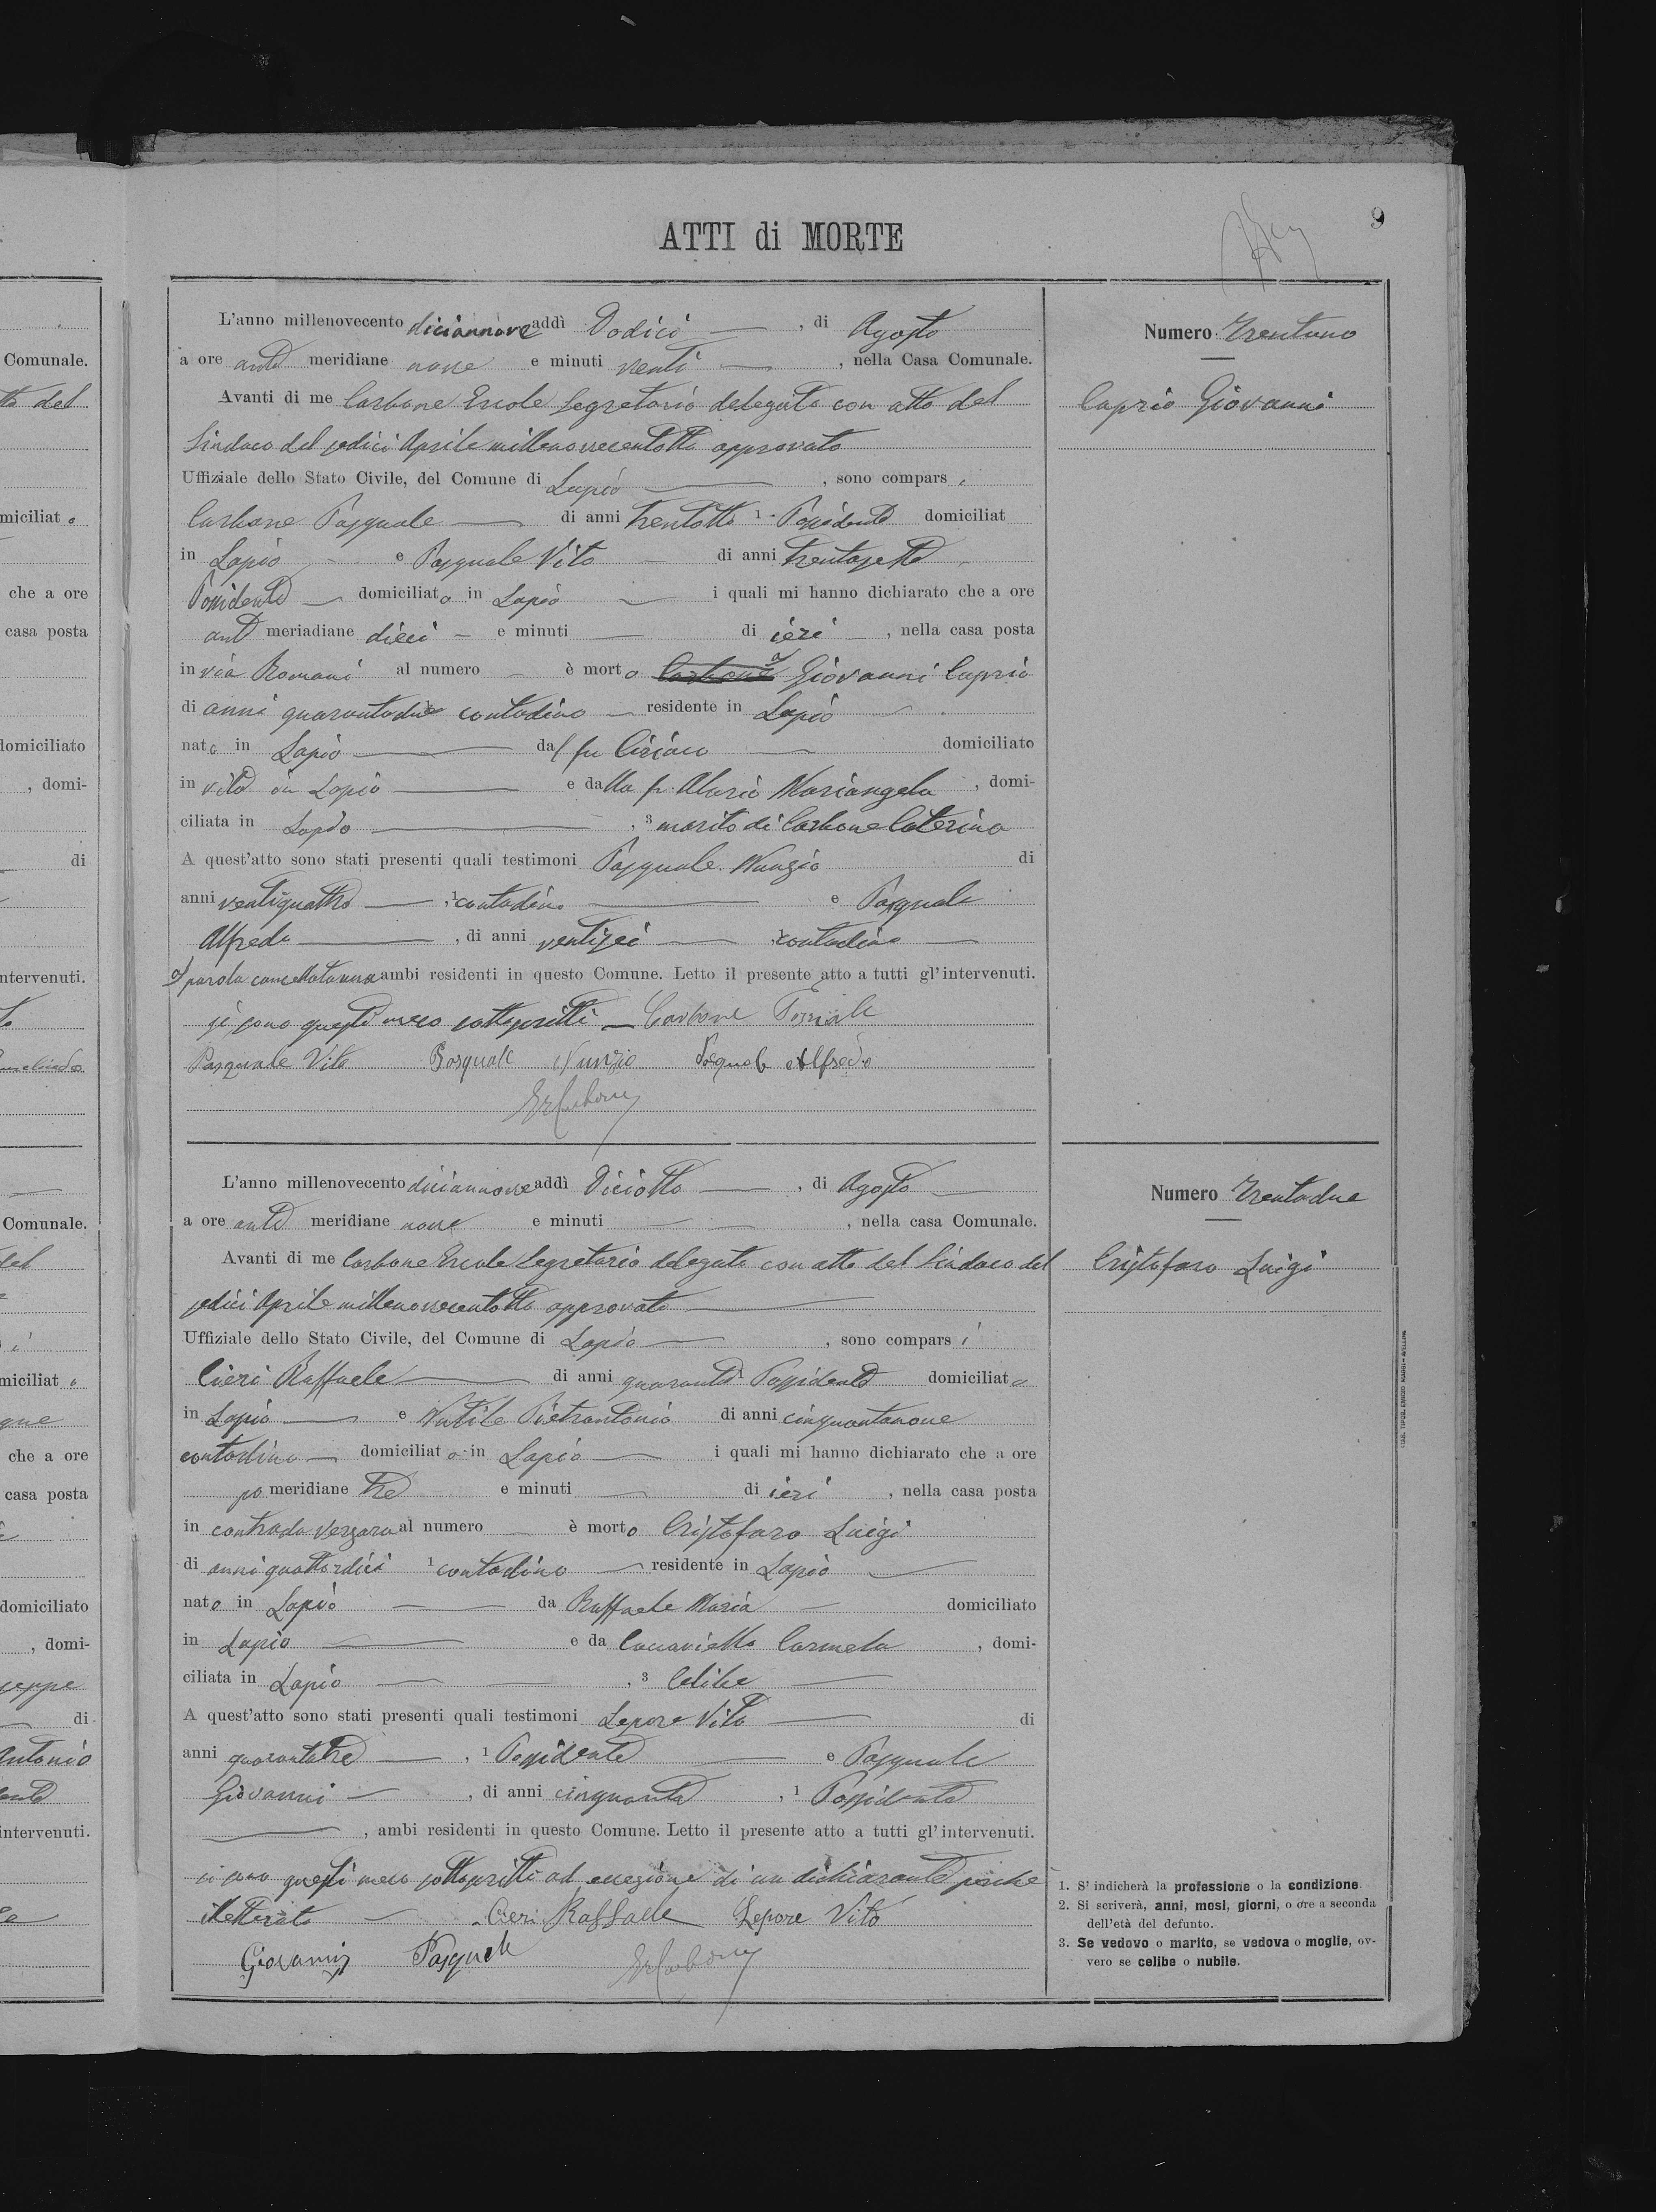 9
ATTI di MORTE
L'anno millenovecento diciannove addì Dodici, di Agosto
a ore ante meridiane nove e minuti venti, nella Casa Comunale.
Avanti di me Carbone Ercole Segretario delegato con atto del
Sindaco del sedici Aprile millenovecentotto approvato
Uffiziale dello Stato Civile, del Comune di Lapio, sono compars i
Carbone Pasquale di anni trentotto 1. Possidente domiciliat
in Lapio e Pasquale Vito di anni trentasette
Possidente domiciliato in Lapio i quali mi hanno dichiarato che a ore
ant meriadiane dieci e minuti di ieri, nella casa posta
in via Romani al numero è morto Carbone Giovanni Caprio
di anni quarantadue contadino residente in Lapio
nato in Lapio dal fu Ciriaco domiciliato
in vita in Lapio e dalla fu Maria Mariangela, domi-
ciliata in Lapio, 3 marito di Carbone Caterina
A quest'atto sono stati presenti quali testimoni Pasquale Nunzio di
anni ventiquattro, 1 contadino e Pasquale
Alfredo, di anni ventisei contadino
a) parola cancellata una ambi residenti in questo Comune. Letto il presente atto a tutti gl'intervenuti.
si sono questi meco sottoscritti Carbone Pasquale
Pasquale Vito Pasquale Nunzio Pasquale Alfredo
ErCarbone
Numero Trentuno
Caprio Giovanni
L'anno millenovecento diciannove addì Diciotto, di Agosto
a ore ante meridiane nove e minuti, nella casa Comunale.
Avanti di me Carbone Ercole Segretario delegato con atto del Sindaco del
sedici Aprile millenovecentotto approvato
Uffiziale dello Stato Civile, del Comune di Lapio, sono compars i
Cieri Raffaele di anni quaranta 1 Possidente domiciliato
in Lapio e Nutile Pietrantonio di anni cinquantanove
contadino domiciliato in Lapio i quali mi hanno dichiarato che a ore
po meridiane tre e minuti di ieri, nella casa posta
in contrada Verzara al numero è morto Cristofaro Luigi
di anni quattordici 1 contadino residente in Lapio
nato in Lapio da Raffaele Maria domiciliato
in Lapio e da Caccaviello Carmela, domi-
ciliata in Lapio, 3 Celibe
A quest'atto sono stati presenti quali testimoni Lepore Vito di
anni quarantatre, 1 Possidente e Pasquale
Giovanni, di anni cinquanta, 1 Possidente
, ambi residenti in questo Comune. Letto il presente atto a tutti gl'intervenuti.
si sono questi meco sottoscritti ad eccezione di un dichiarante perché
illetterato Cieri Raffaele Lepore Vito
Giovanni Pasquale ErCarbone
Numero Trentadue
Cristofaro Luigi
1. S'indicherà la professione o la condizione.
2. Si scriverà, anni, mesi, giorni, o ore a seconda
dell'età del defunto.
3. Se vedovo o marito, se vedova o moglie, ov-
vero se celibe o nubile.